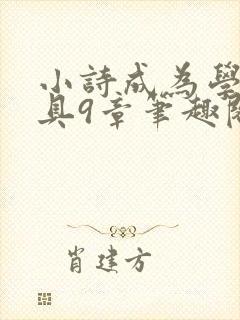 小詩成為學
具9章筆趣閣
肖建方